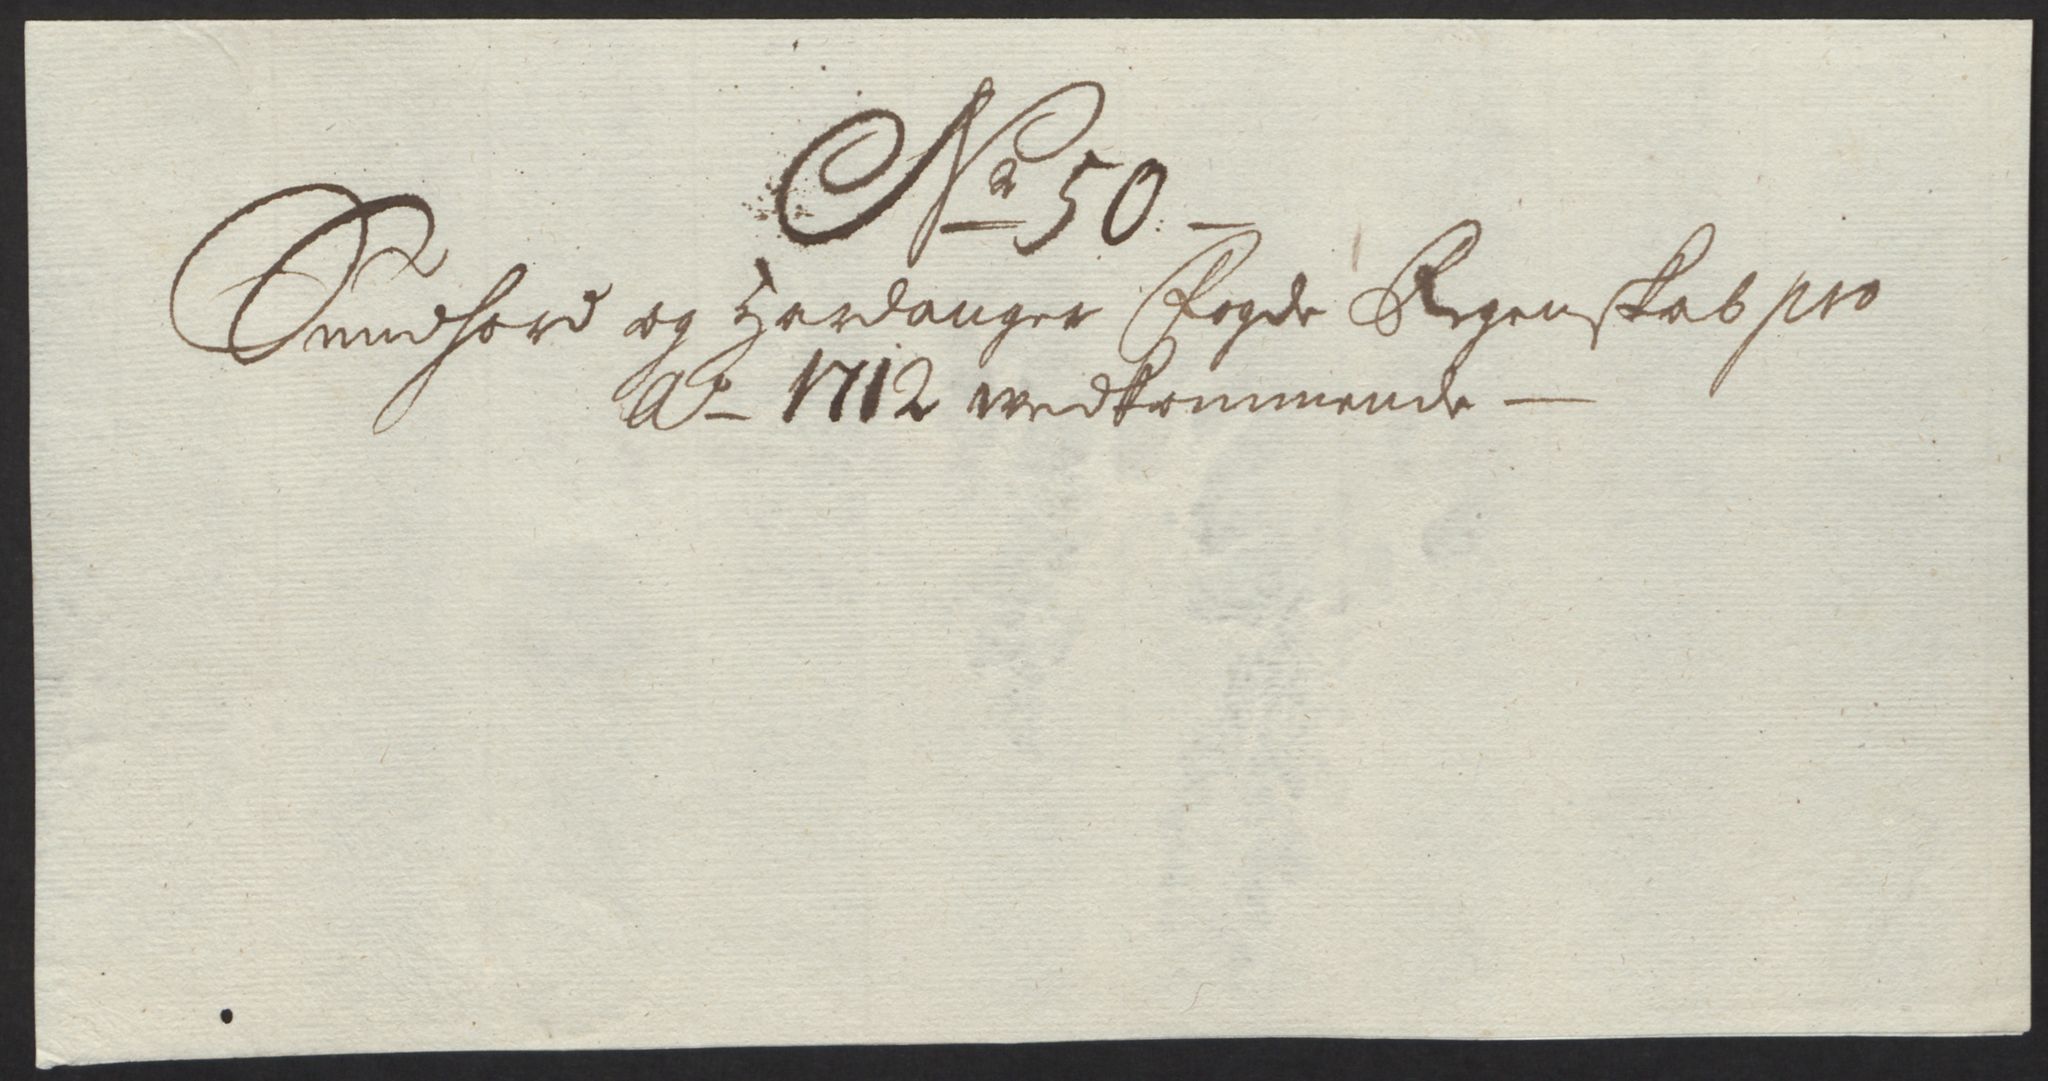 No 50
Sundhord og Hardanger Fogde Regenskab pro
Ao 1712 vedkommende